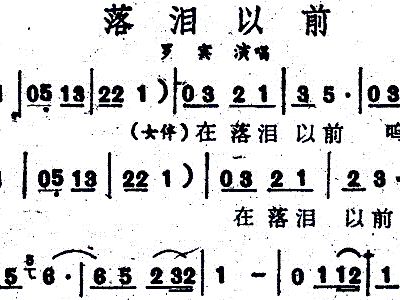 落泪以前
罗宾 演唱
05 13 | 22 1 ) | 03 21 | 3 5 · | 03
(女伴) 在 落泪 以前 呜
| 05 13 | 22 1 ) | 03 21 | 23 ·
在 落泪 以前
5 5 6 · | 65 232 | 1 - | 0 112 | 1